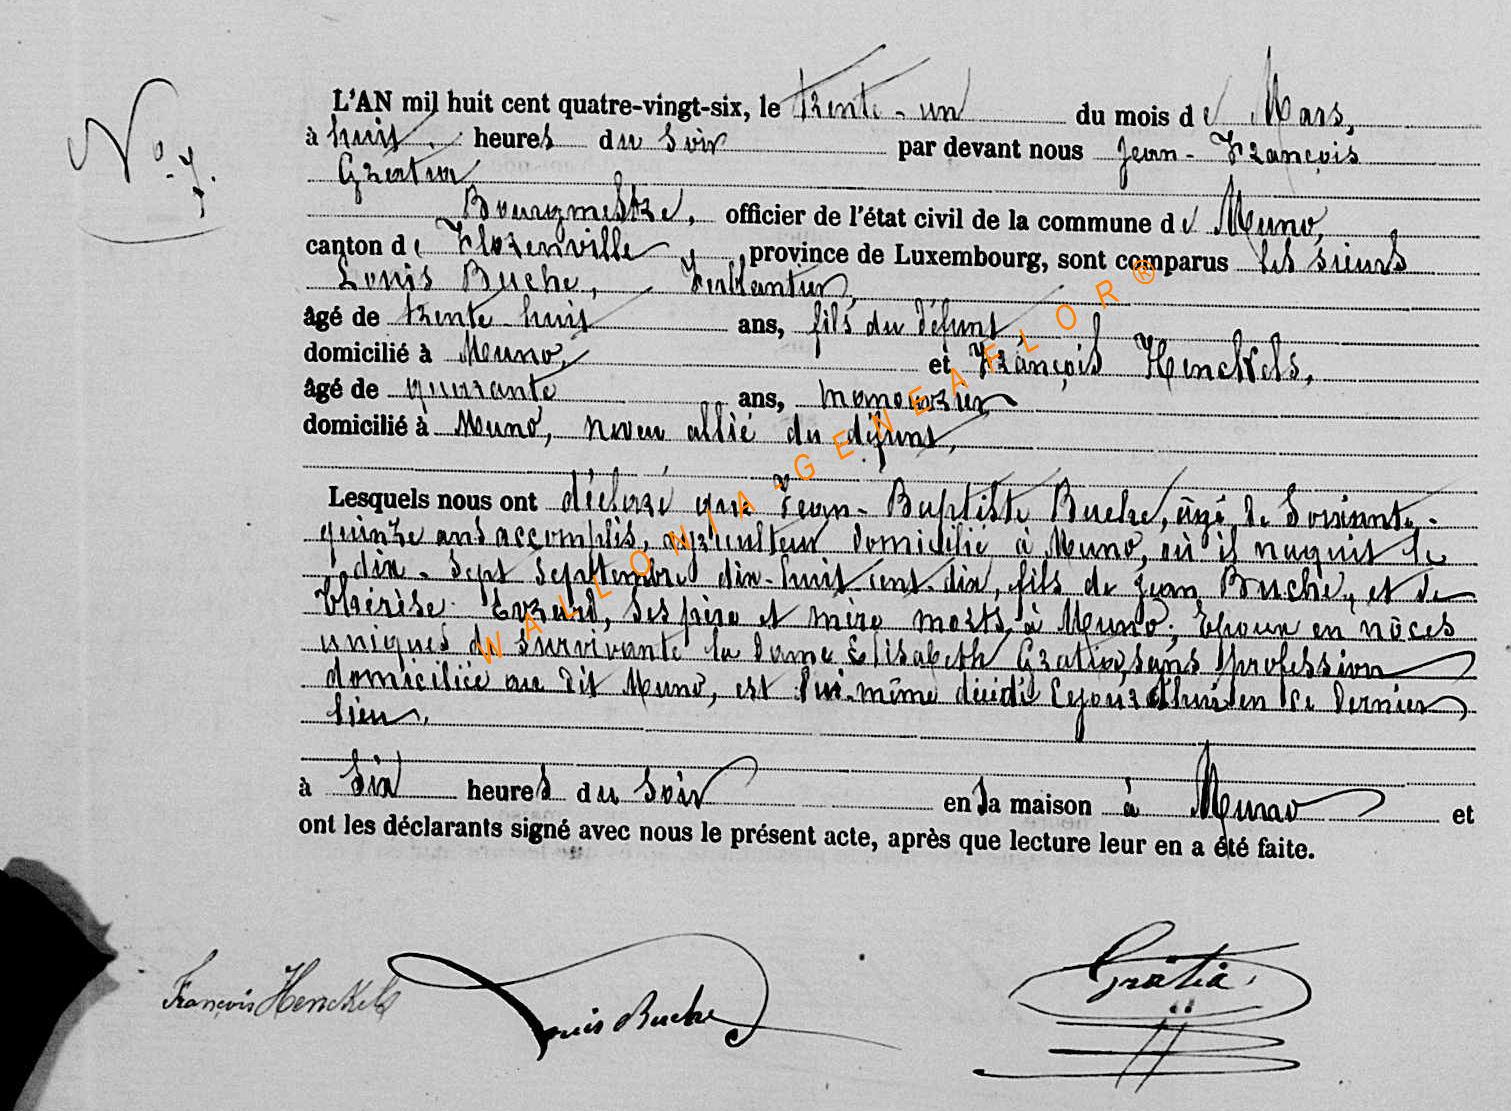 N° 7.
L'AN mil huit cent quatre-vingt-six, le trente-un du mois de Mars,
à huit heures du soir par devant nous Jean-François
Gratia
Bourgmestre, officier de l'état civil de la commune de Muno,
canton de Florenville, province de Luxembourg, sont comparus les sieurs
Louis Buche, ferblantier,
âgé de trente-huit ans, fils du défunt,
domicilié à Muno, et François Henckels,
âgé de quarante ans, manoeuvrier
domicilié à Muno, neveu allié du défunt,
Lesquels nous ont déclaré que Jean-Baptiste Buche, âgé de soixante-
quinze ans accomplis, agriculteur domicilié à Muno, où il naquit le
dix-sept septembre dix-huit cent-dix, fils de Jean Buche, et de
Thérèse Evrard, ses père et mère morts à Muno; Epoux en nôces
uniques de survivante la dame Elisabeth Gratia, sans profession
domiciliée au dit Muno, est lui-même décédé cejourd'hui en ce dernier
lieu,
à six heures du soir en sa maison à Muno et
ont les déclarants signé avec nous le présent acte, après que lecture leur en a été faite.
François Henckels Louis Buche Gratia
WALLONIA-GENEAFLOR®